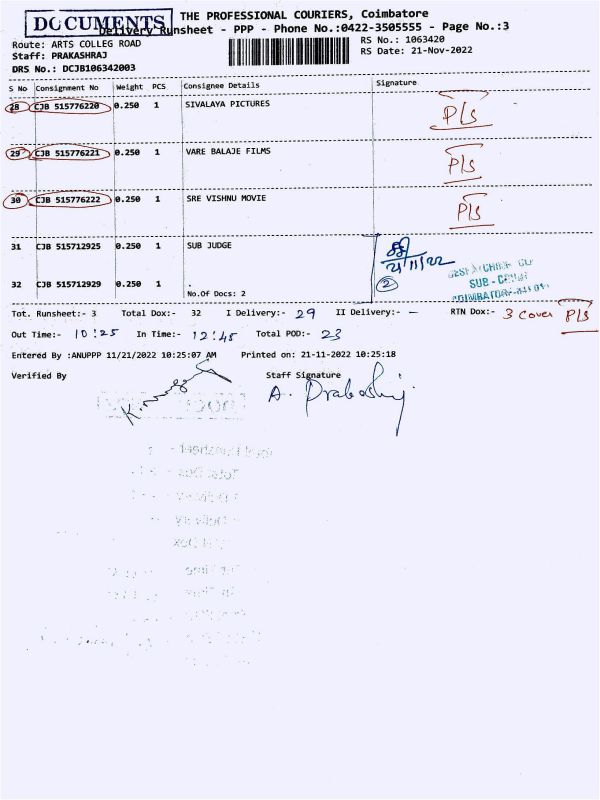 DOCUMENTS
THE PROFESSIONAL COURIERS, Coimbatore
Delivery Runsheet - PPP - Phone No.:0422-3505555 - Page No.:3
Route: ARTS COLLEG ROAD
RS No.: 1063420
Staff: PRAKASHRAJ
RS Date: 21-Nov-2022
DRS No.: DCJB106342003
S No Consignment No Weight PCS Consignee Details Signature
28 CJB 515776220 0.250 1 SIVALAYA PICTURES P/s
29 CJB 515776221 0.250 1 VARE BALAJE FILMS P/s
30 CJB 515776222 0.250 1 SRE VISHNU MOVIE P/s
31 CJB 515712925 0.250 1 SUB JUDGE
21/11/22
32 CJB 515712929 0.250 1 . 2
SUB - 
No.Of Docs: 2
Tot. Runsheet:- 3 Total Dox:- 32 I Delivery:- 29 II Delivery:- - RTN Dox:- 3 cover P/s
Out Time:- 10:25 In Time:- 12:45 Total POD:- 23
Entered By :ANUPPP 11/21/2022 10:25:07 AM Printed on: 21-11-2022 10:25:18
Verified By Staff Signature
A. Prakashraj